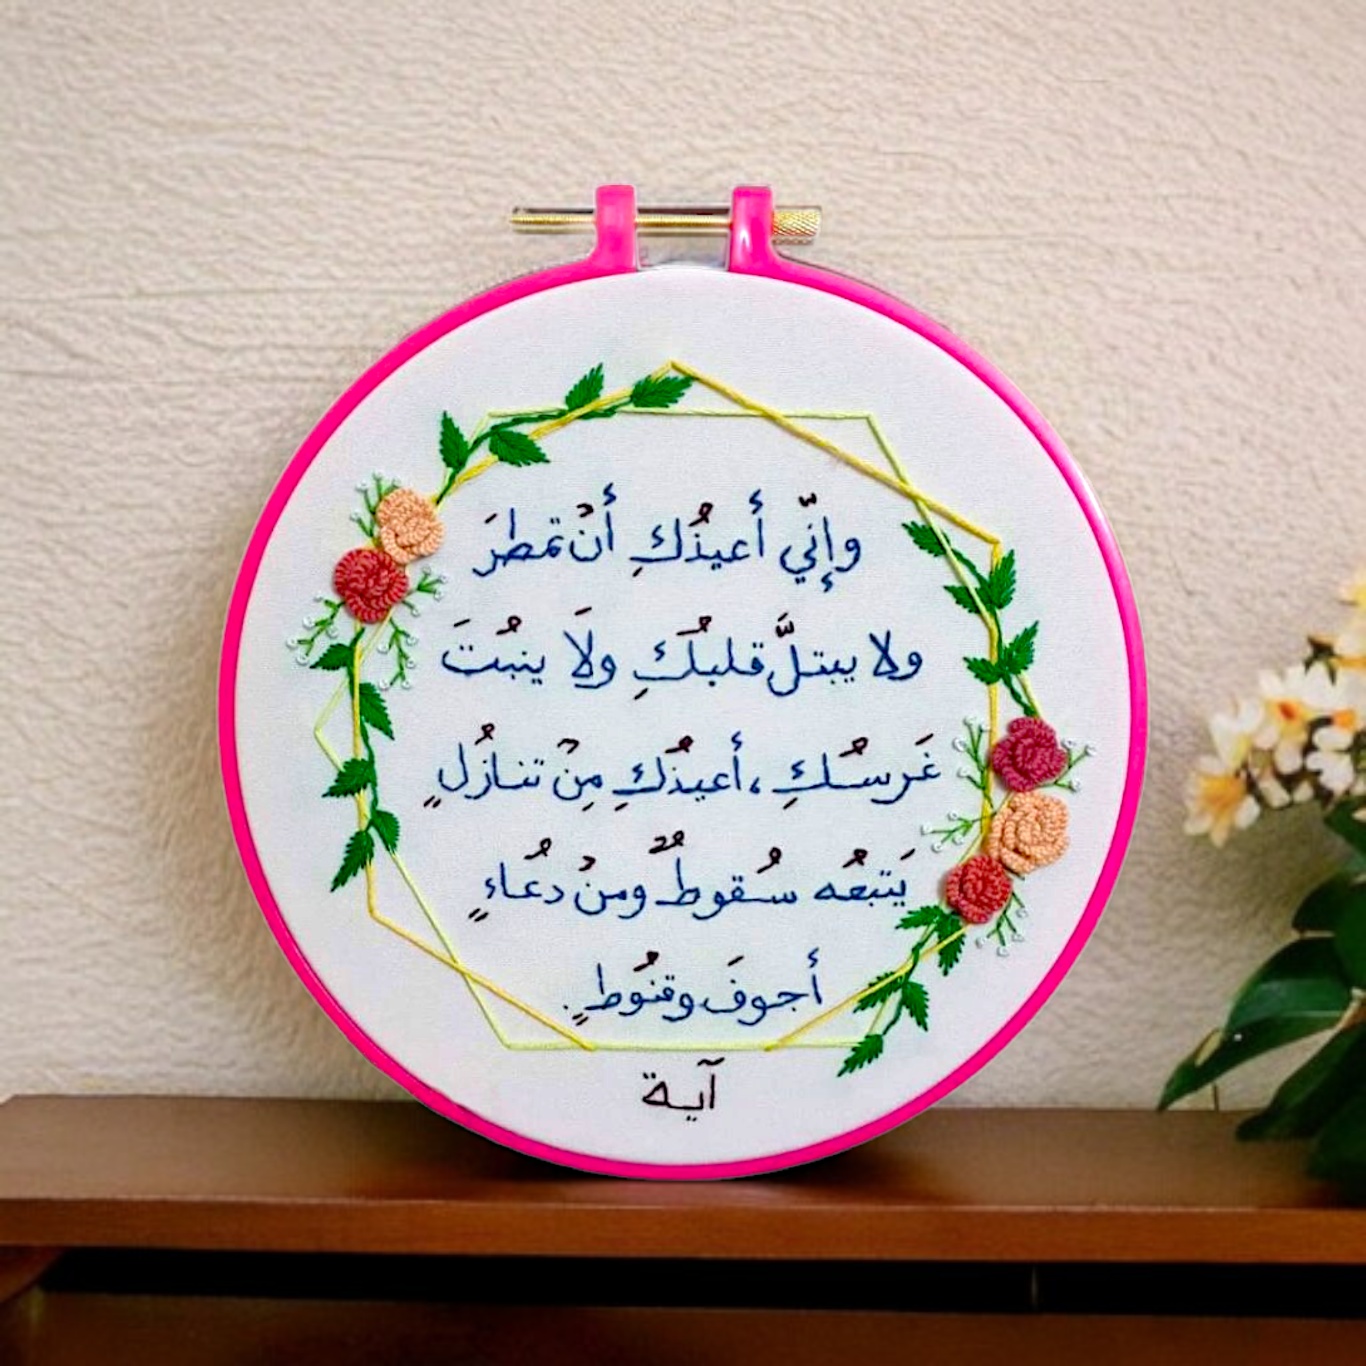 وإنّي أُعيذُكِ أنْ تمطرَ
ولا يبتلَّ قلبُكِ ولَا ينبُتَ
غَرسُكِ، أعيذُكِ مِنْ تنازُلٍ
يَتبعُه سُقوطٌ ومنْ دعُاءٍ
أجوفَ وقنُوطٍ.
آية